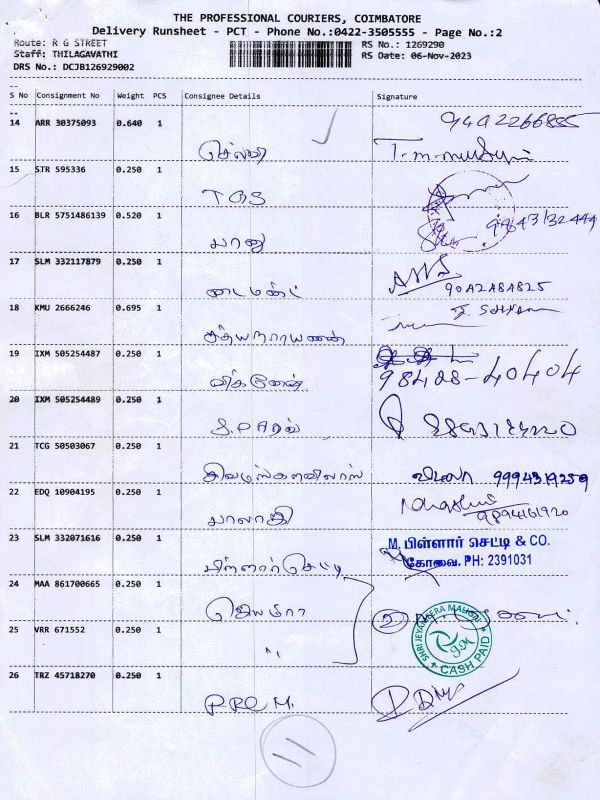 THE PROFESSIONAL COURIERS, COIMBATORE
Delivery Runsheet - PCT - Phone No.:0422-3505555 - Page No.:2
Route: R G STREET RS No.: 1269290
Staff: THILAGAVATHI RS Date: 06-Nov-2023
DRS No.: DCJB126929002
S No Consignment No Weight PCS Consignee Details Signature
14 ARR 30375093 0.640 1
செல்வி
15 STR 595336 0.250 1
TGS
16 BLR 5751486139 0.520 1
பானு 9943132444
17 SLM 332117879 0.250 1
டைமண்ட் 9042484825
18 KMU 2666246 0.695 1
சத்யநாராயணன்
19 IXM 505254487 0.250 1
விக்னேஷ் 98428-40404
20 IXM 505254489 0.250 1
21 TCG 50503067 0.250 1
விமலா 9994319259
22 EDQ 10904195 0.250 1
பாலாஜி
23 SLM 332071616 0.250 1
பிள்ளார் செட்டி
M. பிள்ளார் செட்டி & CO.
கோவை. PH: 2391031
24 MAA 861700665 0.250 1
ஜெயமீரா
25 VRR 671552 0.250 1
〃
CASH PAID
26 TRZ 45718270 0.250 1
11